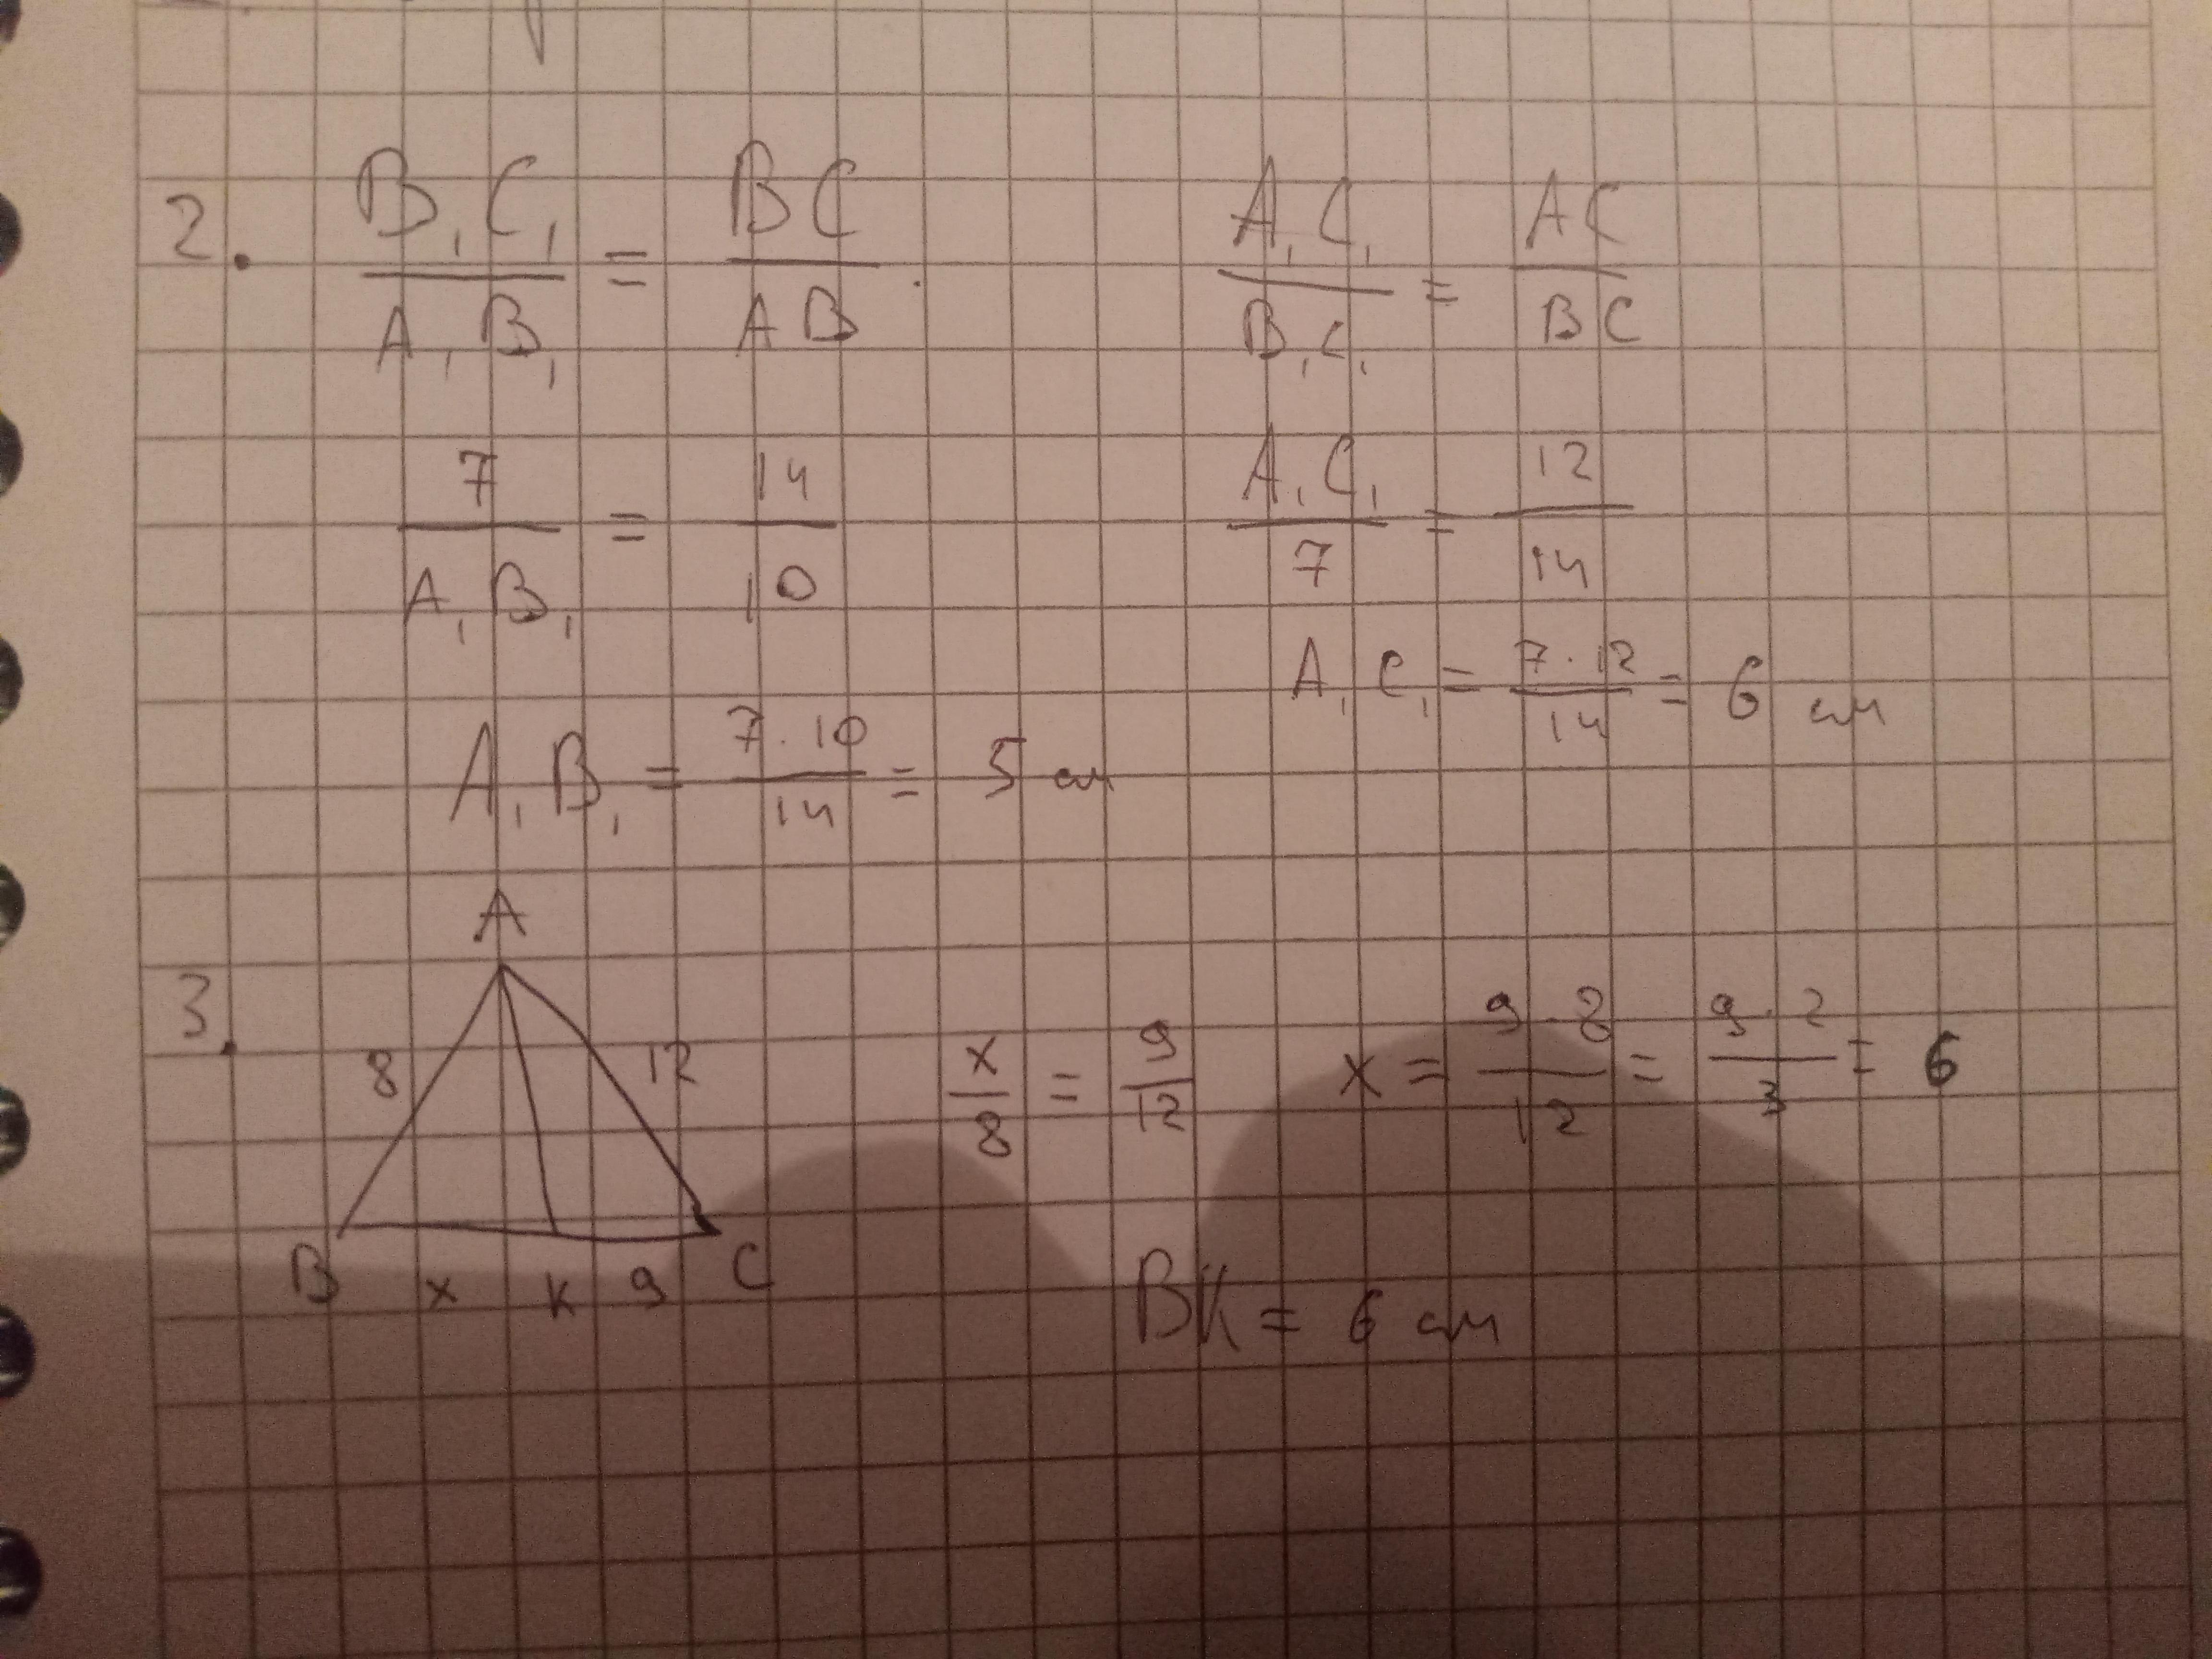 2. B₁C₁/A₁B₁ = BC/AB
7/A₁B₁ = 14/10
A₁B₁ = 7·10/14 = 5 см
A₁C₁/B₁C₁ = AC/BC
A₁C₁/7 = 12/14
A₁C₁ = 7·12/14 = 6 см
3.
A
8 12
B x K 9 C
x/8 = 9/12
x = 9·8/12 = 9·2/3 = 6
BK = 6 см